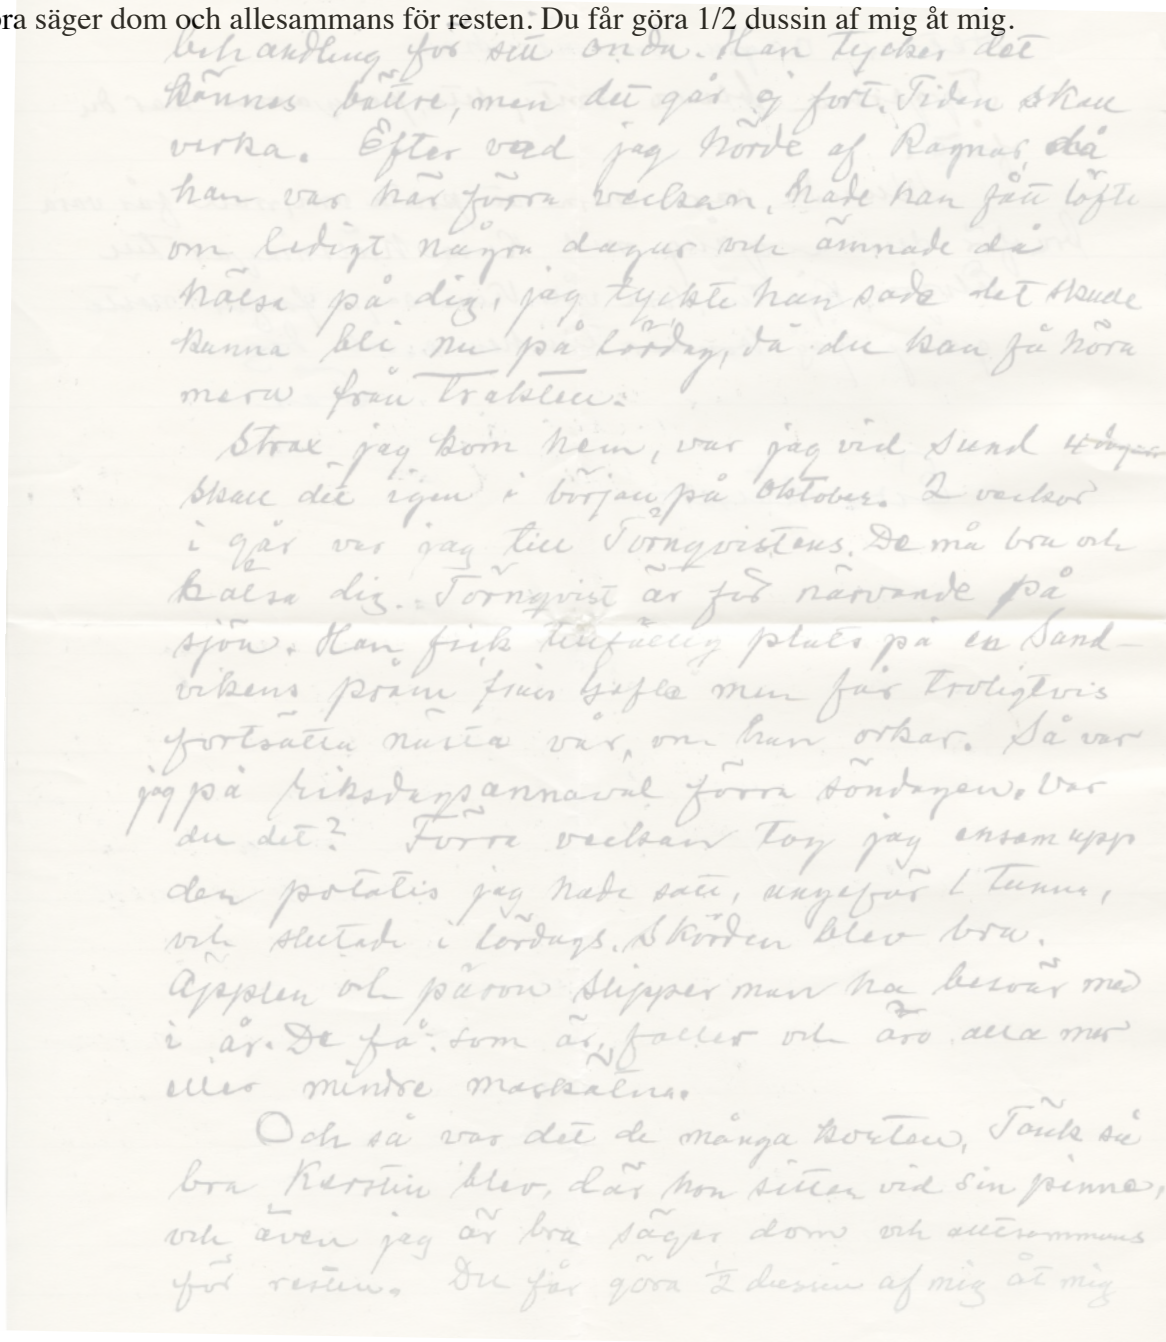 ra säger dom och allesammans för resten. Du får göra 1/2 dussin af mig åt mig.
behandling för sitt onda. Han tycker det
kännes bättre, men det går ej fort. Tiden skall
verka. Efter vad jag hörde af Ragnar, då
han var här förra veckan, hade han fått löfte
om ledigt några dagar och ämnade då
hälsa på dig, jag tyckte han sade det skulle
kunna bli nu på lördag, då du kan få höra
mera från trakten.
Strax jag kom hem, var jag vid Sund 4 dagar
skall dit igen i början på Oktober. 2 veckor
i går var jag till Törnqvistens. De må bra och
hälsa dig. Törnqvist är för närvande på
sjön. Han fick tillfällig plats på en Sand-
vikens pråm från Gefle men får troligtvis
fortsätta nästa vår, om han orkar. Så var
jag på Riksdagsmannaval förra söndagen. Var
du det? Förra veckan tog jag ensam upp
den potatis jag hade satt, ungefär 1 tunna,
och slutade i lördags. Skörden blev bra.
Äpplen och päron slipper man ha besvär med
i år. De få som är, faller och äro alla mer
eller mindre maskätna.
Och så var det de många korten. Tänk så
bra Kerstin blev, där hon sitter vid sin pinne,
och även jag är bra säger dom och allesammans
för resten. Du får göra 1/2 dussin af mig åt mig